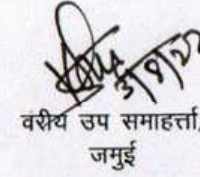 वरीय उप समाहर्त्ता,
जमुई